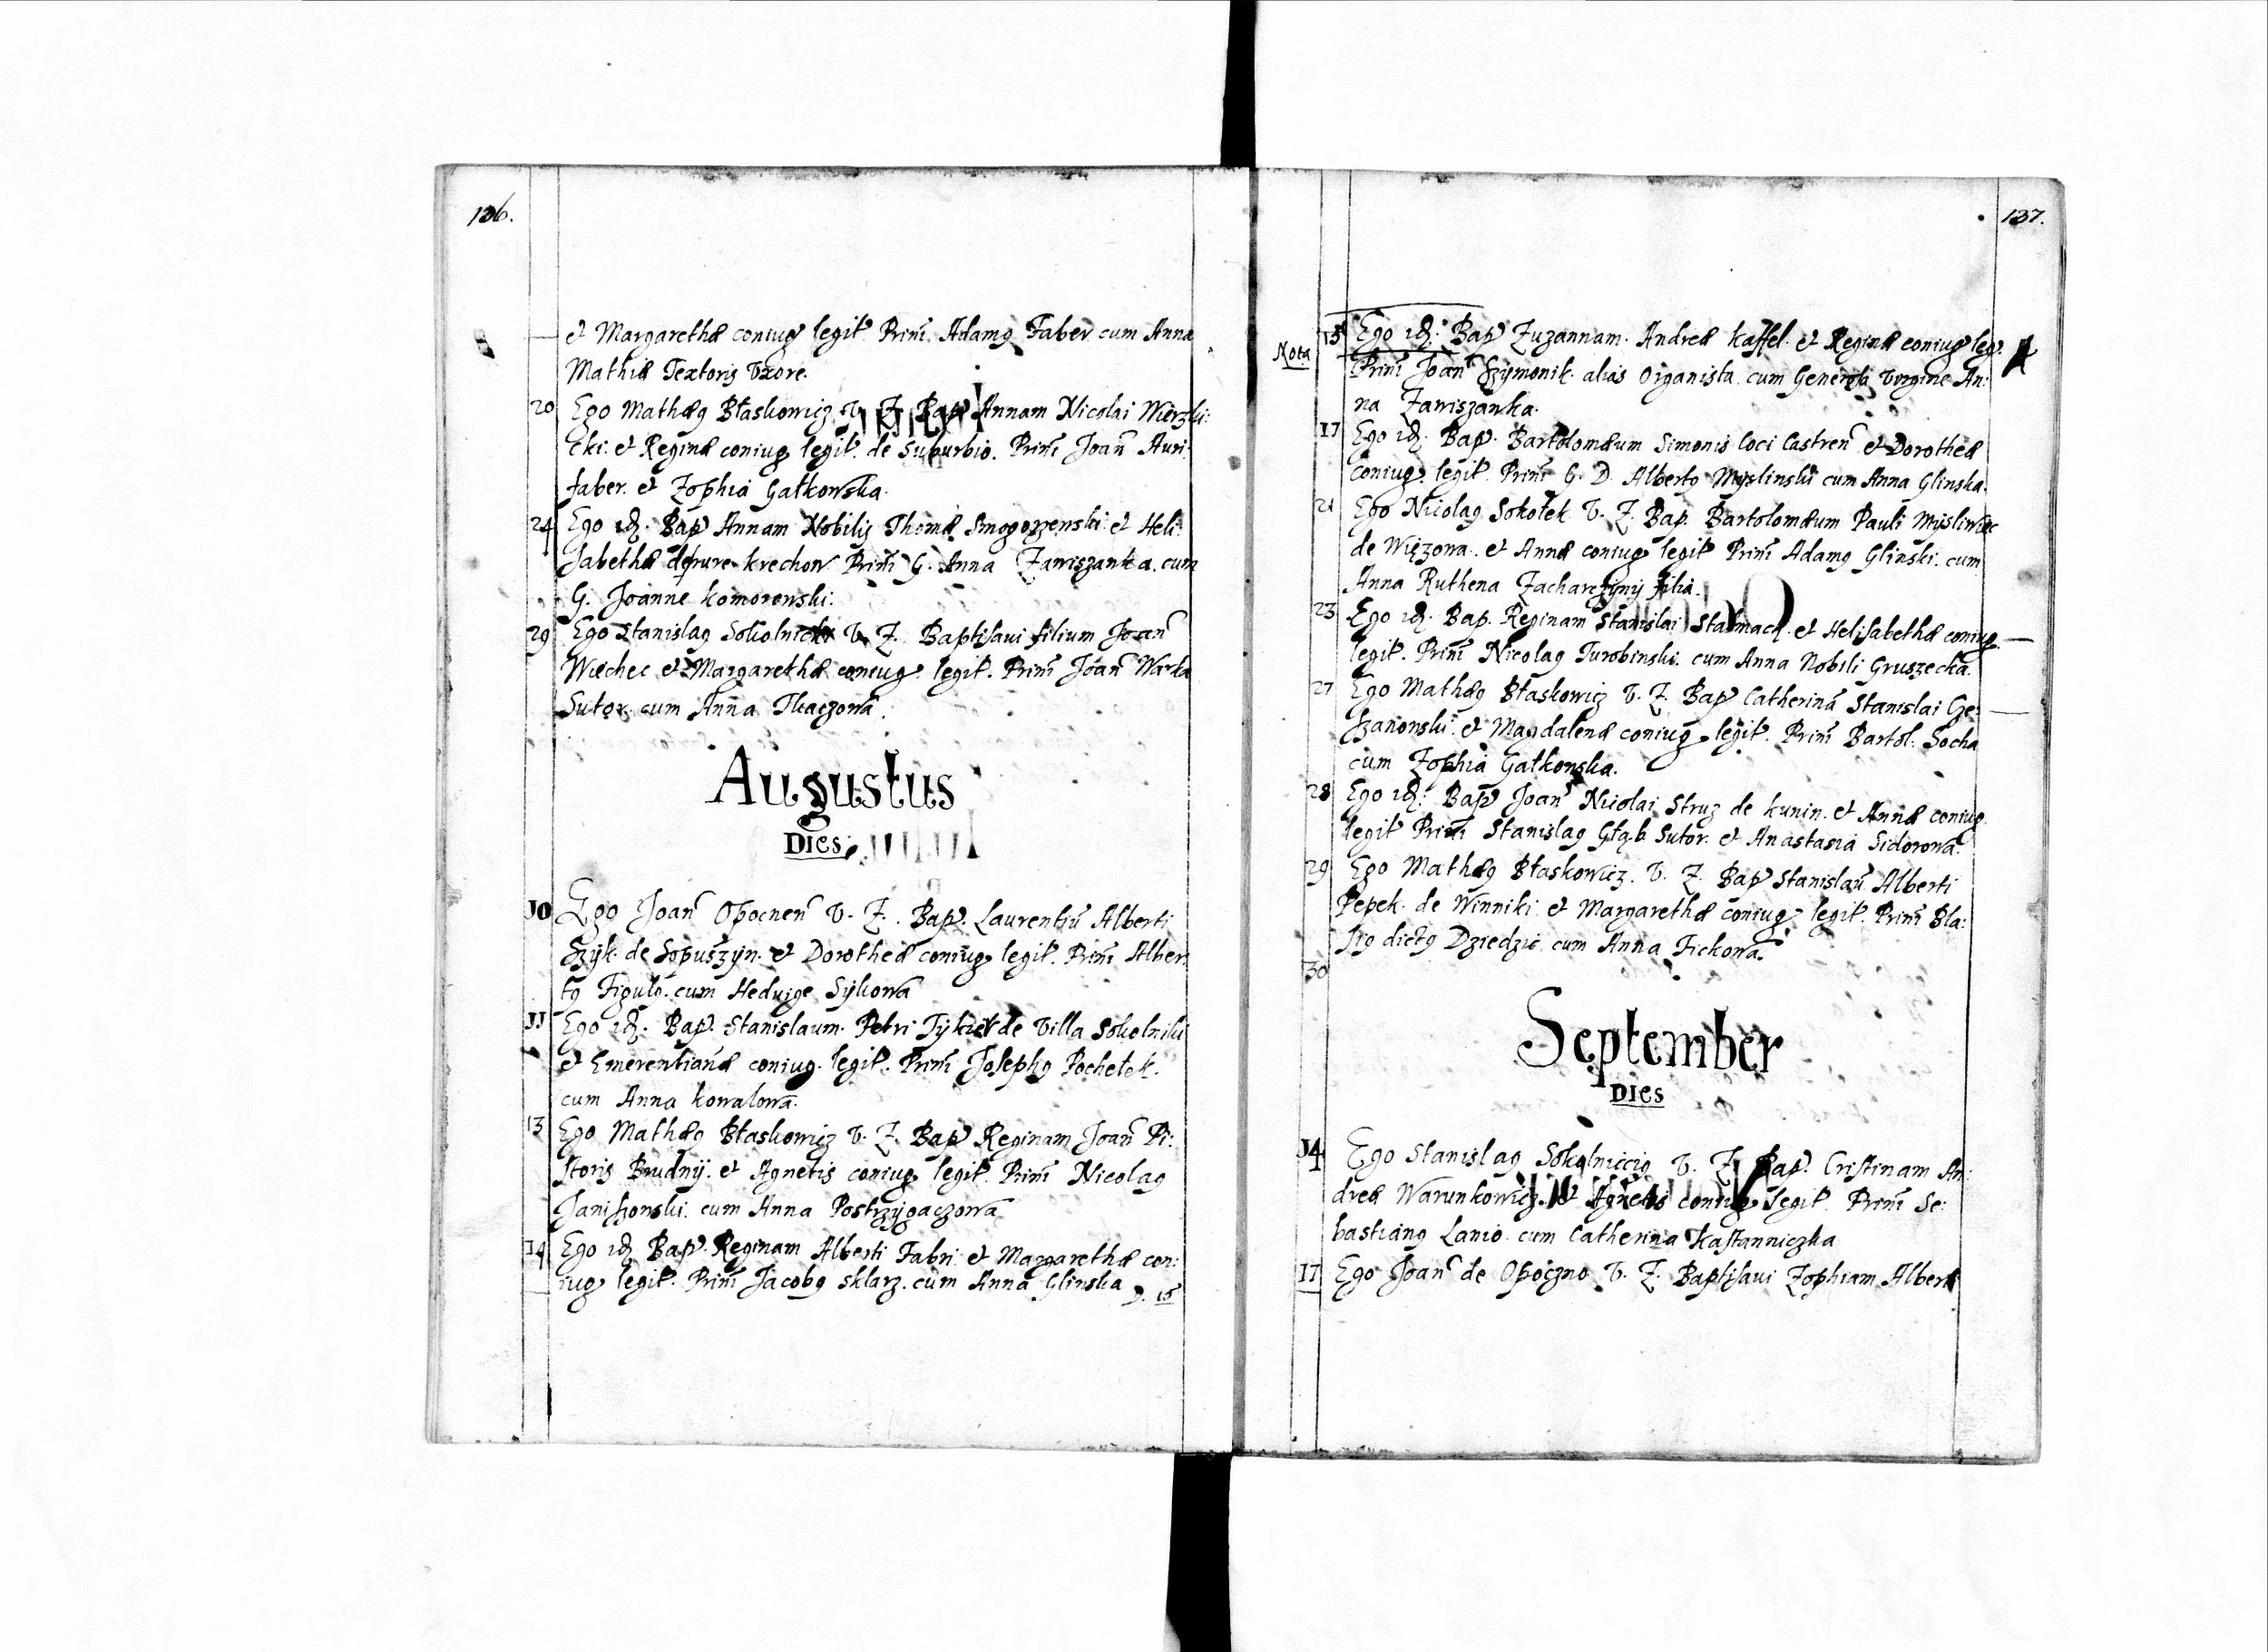 136.
et Margarethæ coniug legit. Prim Adamg Faber cum Anna
Mathiæ Textoris Vxore.
20 Ego Mathæg Błaskowicz V. Z. Bap Annam Nicolai Wierzbi:
cki et Reginæ coniug legit. de Suburbio. Prim Joan Auri:
faber. et Zophia Gałkowska.
24 Ego id. Bap Annam Nobilis Thomæ Smogorzenski et Heli:
sabethæ de krechow Prim G. Anna Zawiszanka. cum
G. Joanne komorowski.
29 Ego Stanislag Sokolnicki V. Z. Baptisaui filium Joan
Wiechec et Margarethæ coniug legit. Prim Joan Warka
Sutor. cum Anna Tkaczowa.
Augustus
Dies
10 Ego Joan Opocnen V. Z. Bap. Laurentiu Alberti
Szyk. de Sopuszyn. et Dorotheæ coniug legit. Prim Alber:
tg Figulg. cum Hedvige Sykowa
11 Ego id. Bap. Stanislaum. Petri Tykiet de Villa Sokolniki
et Emerentianæ coniug. legit. Prim Josephg Pochetek.
cum Anna kowalowa.
13 Ego Mathæg Błaskowicz V. Z. Bap Reginam Joan Pi:
storis Brudnij. et Agnetis coniug legit. Prim Nicolag
Janiszowski. cum Anna Postrzygaczowa
14 Ego id Bap. Reginam Alberti Fabri et Margarethæ con:
iug legit. Prim Jacobg sklarz. cum Anna Glinska D. 15
137.
Nota 15 Ego id. Bap Zuzannam. Andreæ kaffel. et Reginæ coniug leg.
Prim Joan Szymonik. alias Organista cum Generosa Virgine An:
na Zawiszanka.
17 Ego id. Bap. Bartolomæum Simonis Coci Castren et Dorotheæ
coniug. legit. Prim G. D. Albertg Myslinski cum Anna Glinska.
21 Ego Nicolag Sokołek V. Z. Bap. Bartolomæum Pauli Mysliwiec
de Więzowa. et Annæ coniug legit Prim Adamg Glinski. cum
Anna Ruthena Zacharczynij filia.
23 Ego id. Bap. Reginam Stanislai Stalmach. et Helisabethæ coniug.
legit. Prim Nicolag Turobinski. cum Anna Nobili Gruszecka.
27 Ego Mathæg Błaskowicz V. Z. Bap Catherina Stanislai Cze:
szanowski. et Magdalenæ coniug. legit. Prim Bartol: Socha
cum Zophia Gałkowska.
28 Ego id. Bap Joan Nicolai Struz de kunin. et Annæ coniug
legit Prim Stanislag Głąb Sutor. et Anastasia Sidorowa.
29 Ego Mathæg Błaskowicz. V. Z. Bap Stanislau Alberti
Pepek. de Winniki et Margarethæ coniug legit. Prim Bla:
sig dictg Dziedzic cum Anna Fickowa.
30
September
Dies
14 Ego Stanislag Sokolniccig V. Z. Bap. Cristinam An:
dreæ Warunkowicz. et Agnetis coniug legit. Prim Se:
bastiang Lanio cum Catherina kastanniczka
17 Ego Joan de Opoczno V. Z. Baptisaui Zophiam Alberti